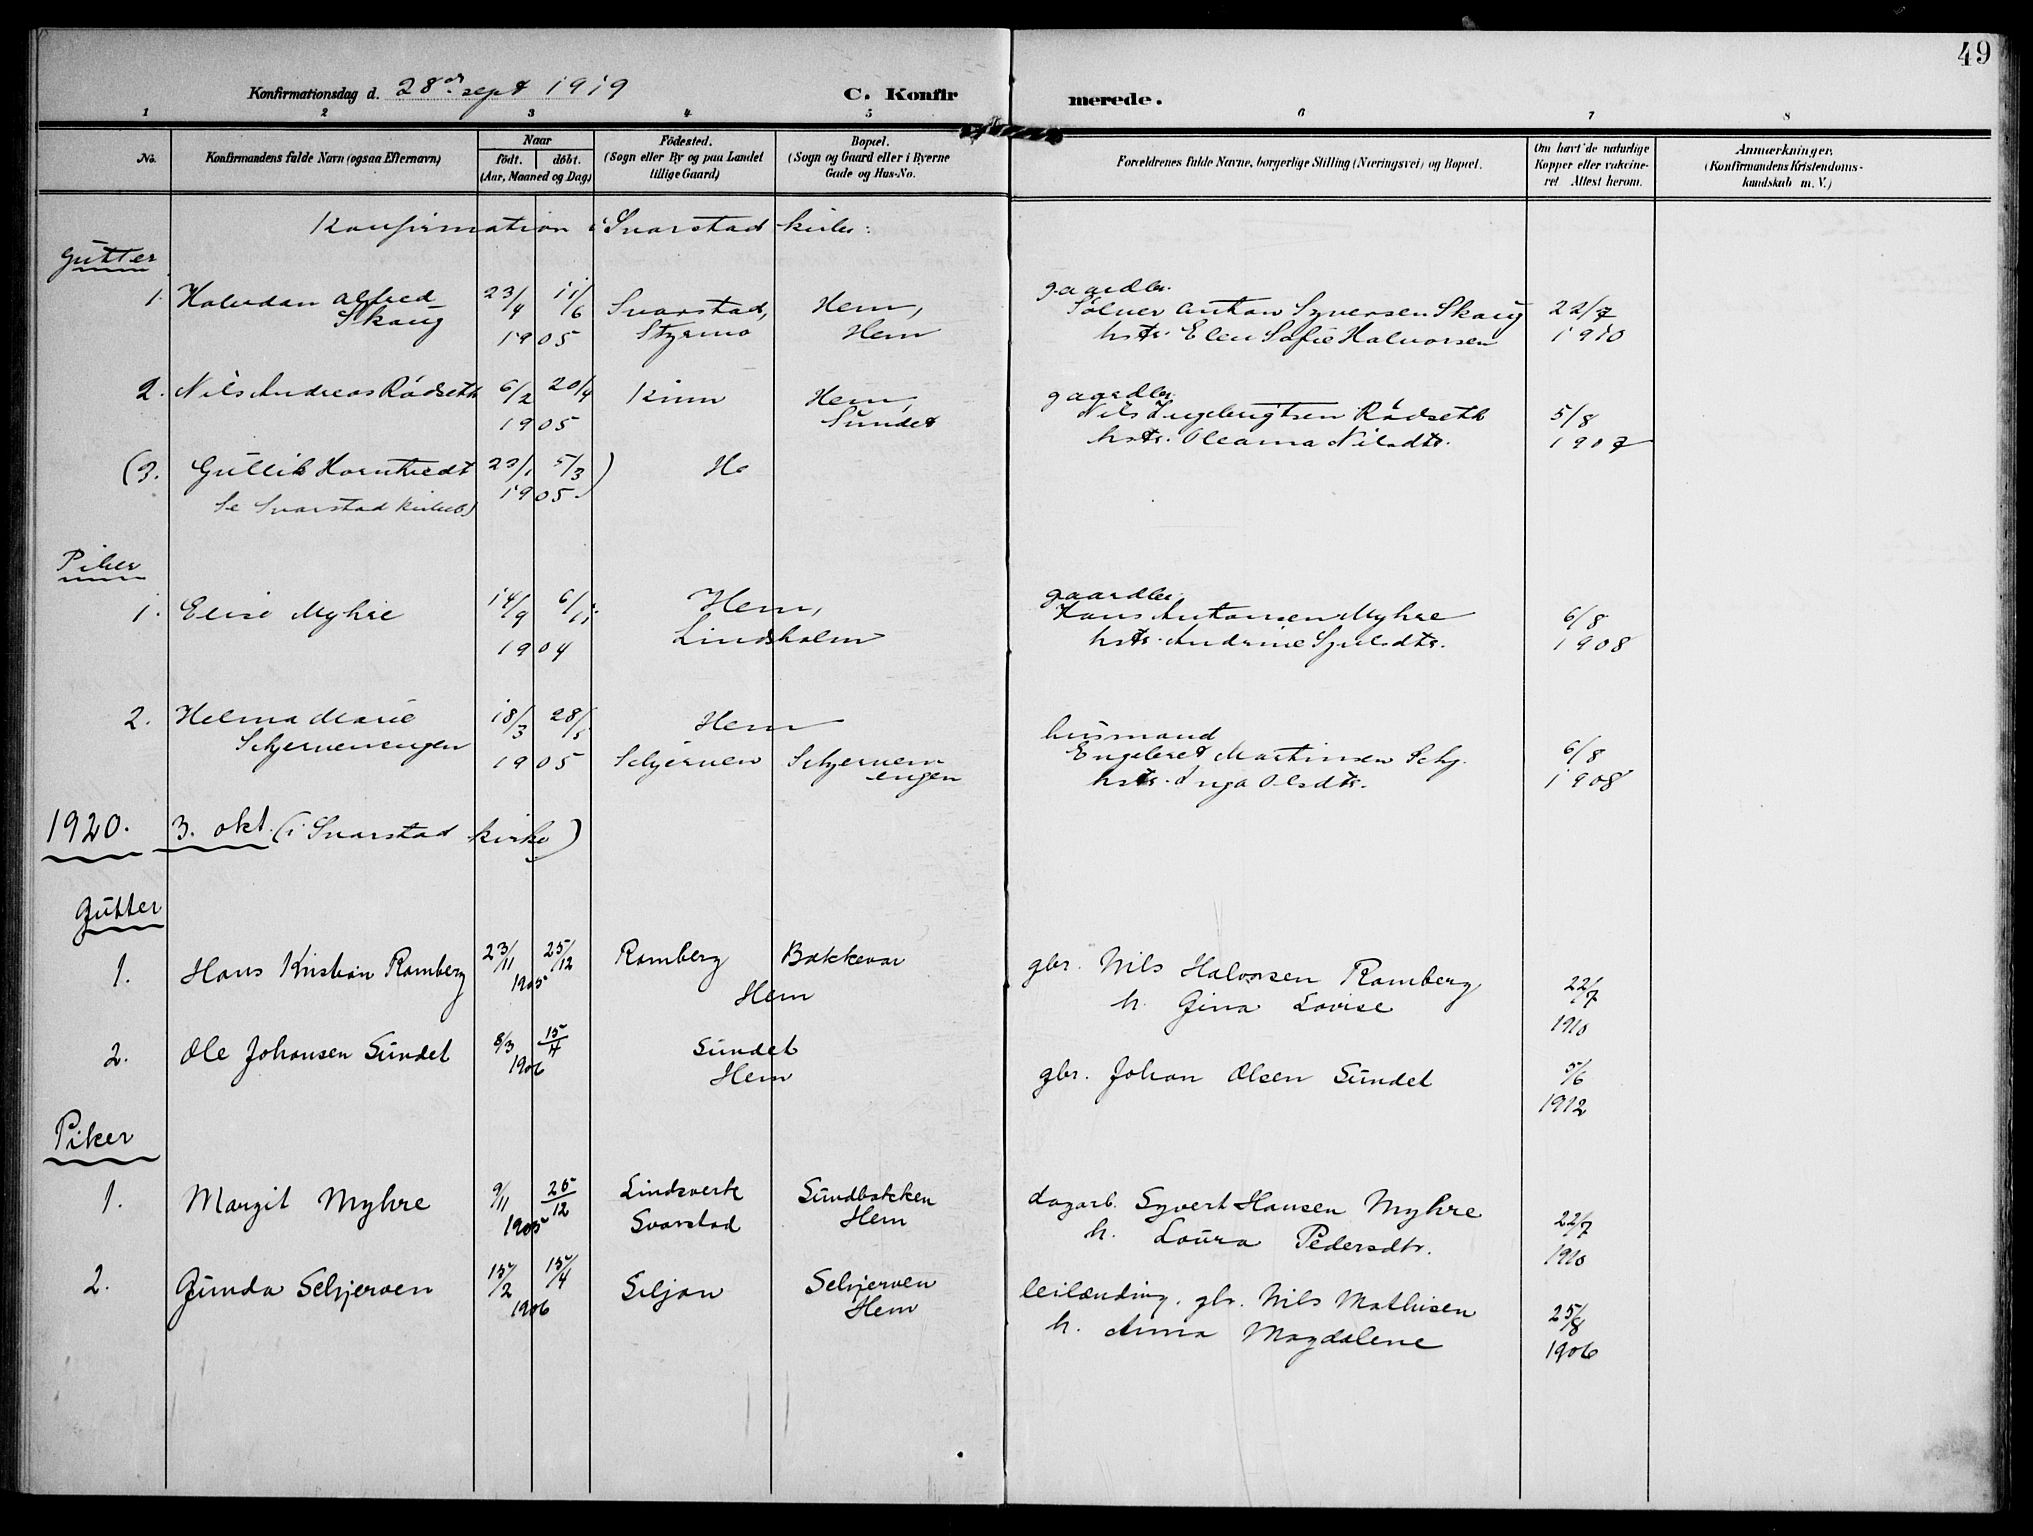 49
Konfirmationsdag d. 28de sept 1919
C. Konfirmerede.
1 2 3 4 5 6 7 8
No.
Konfirmandens fulde Navn (ogsaa Efternavn)
Naar
födt. döbt.
(Aar, Maaned og Dag)
Födested.
(Sogn eller By og paa Landet
tillige Gaard)
Bopæl.
(Sogn og Gaard eller i Byerne
Gade og Hus-No.
Forældrenes fulde Navne, borgerlige Stilling (Næringsvei) og Bopæl.
Om havt de naturlige
Kopper eller vakcine-
ret Attest herom.
Anmærkninger,
(Konfirmandens Kristendoms-
kundskab m. V.)
Konfirmation i Svarstad kirke:
Gutter
1. Halvdan Alfred Skaug 23/4 11/6 1905 Svarstad, Styrmo Hem, Hem
gaardbr.
Sölver Anton Syversen Skaug 22/7
hstr. Elen Sofie Halvorsen 1910
2. Nils Andreas Rödseth 6/2 20/4 1905 Kinn Hem, Sundet
gaardbr.
Nils Ingebrigtsen Rödseth 5/8
hstr. Oleana Nilsdtr. 1907
(3. Gullik Horntvedt 23/1 5/3 1905) He
Se Svarstad kirkeb)
Piker
1. Elise Myhre 14/9 6/11 1904 Hem, Lindsholm
gaardbr.
Hans Antonsen Myhre 6/8
hstr. Andrine Sjulsdtr. 1908
2. Helma Marie 18/3 28/5 Hem
Schjervenengen 1905 Schjerven Schjerven-
engen
husmand
Engebret Martinsen Schj. 6/8
hstr. Inga Olsdtr. 1908
1920. 3. okt. (i Svarstad kirke)
Gutter
1. Hans Kristian Ramberg 23/11 25/12 1905 Ramberg Bakkevar
Hem
gbr. Nils Halvorsen Ramberg 22/7
h. Gina Lovise 1910
2. Ole Johansen Sundet 8/3 15/4 1906 Sundet
Hem
gbr. Johan Olsen Sundet 5/6
1912
Piker
1. Margit Myhre 9/11 25/12 1905 Lindsverk Svarstad Sundbakken Hem
dagarb. Syvert Hansen Myhre 22/7
h. Laura Pedersdtr. 1910
2. Gunda Schjerven 15/2 15/4 1906 Siljan Schjerven
Hem
leilænding, gbr. Nils Mathisen 25/8
h. Anna Magdalene 1906